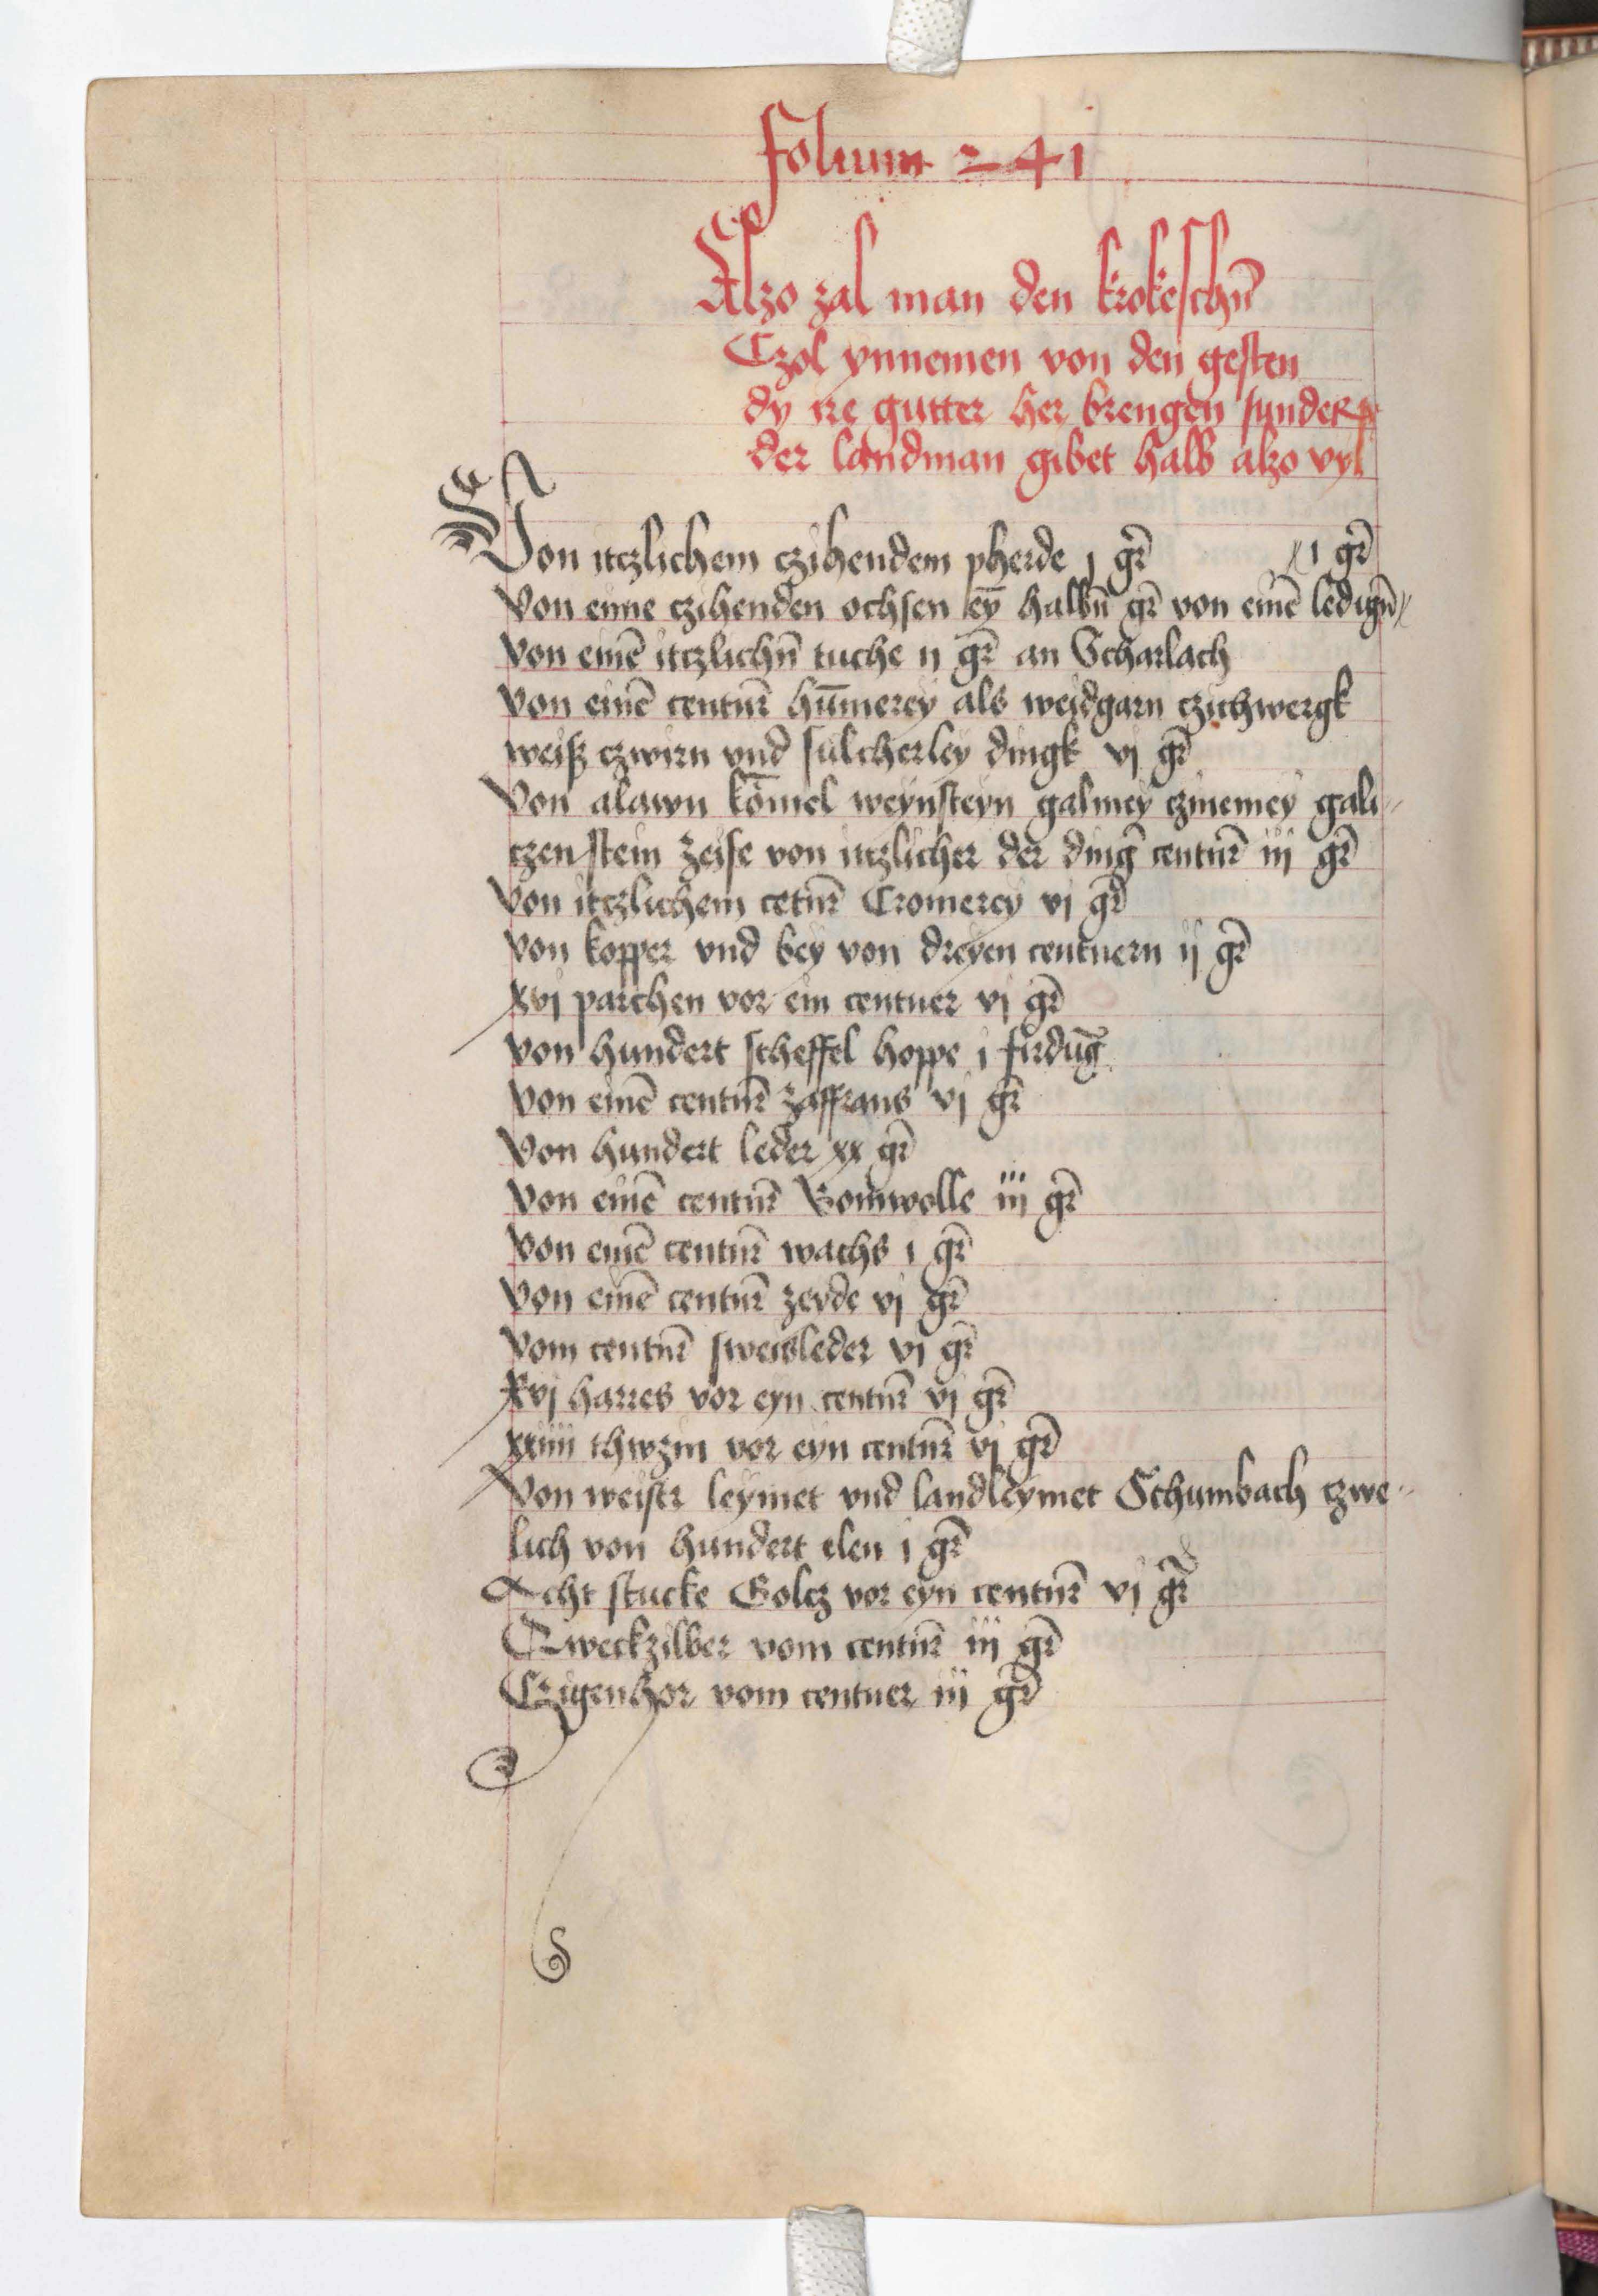 folium 241
Alzo zal man den krokeschn̄
Czol ynnemen von den gesten
dy ire gutter her brengen sunder
der landman gibet halb alzo vyl
Von itczlichem czihendem pherde j gr̄ 〤 1 gr̄
Von eyne czihenden ochsen ey̅ halbn̄ gr̄ von eine̅ ledign̄ 〤
Von eine̅ itczlichn̄ tuche ij gr̄ an Scharlach
Von eine̅ centur̄ hu̅merey als weidgarn czichwergk
weiß czwirn vnd sulcherley dingk vj gr̄
Von alawn ko̅mel weynsteyn galmey czmemey gali
czenstein zeise von itczlicher der dinḡ centur̄ iij gr̄
Von itczlichem cetur̄ Cromerey vj gr̄
Von kopper vnd bey von dreyen centuern ij gr̄
xvj parchen vor ein centuer vj gr̄
Von hundert scheffel hoppe j firdu̅g
Von eine̅ centur̄ zaffrans vj gr̄
Von hundert leder xx gr̄
Von eine̅ centur̄ Bomwolle iij gr̄
Von eine̅ centur̄ wachs 1 gr̄
Von eine̅ centur̄ zeyde vj gr̄
Vom centur̄ sweisleder vj gr̄
xvj harres vor eyn centur̄ vj gr̄
xxiiij thwzin vor eyn centur̄ vj gr̄
Von weiser leymet vnd landleymet Schumbach czwe
lich von hundert elen j gr̄
Acht stucke Golcz vor eyn centur̄ vj gr̄
Qweckzilber vom centur̄ iij gr̄
Czigenhor vom centuer iij gr̄